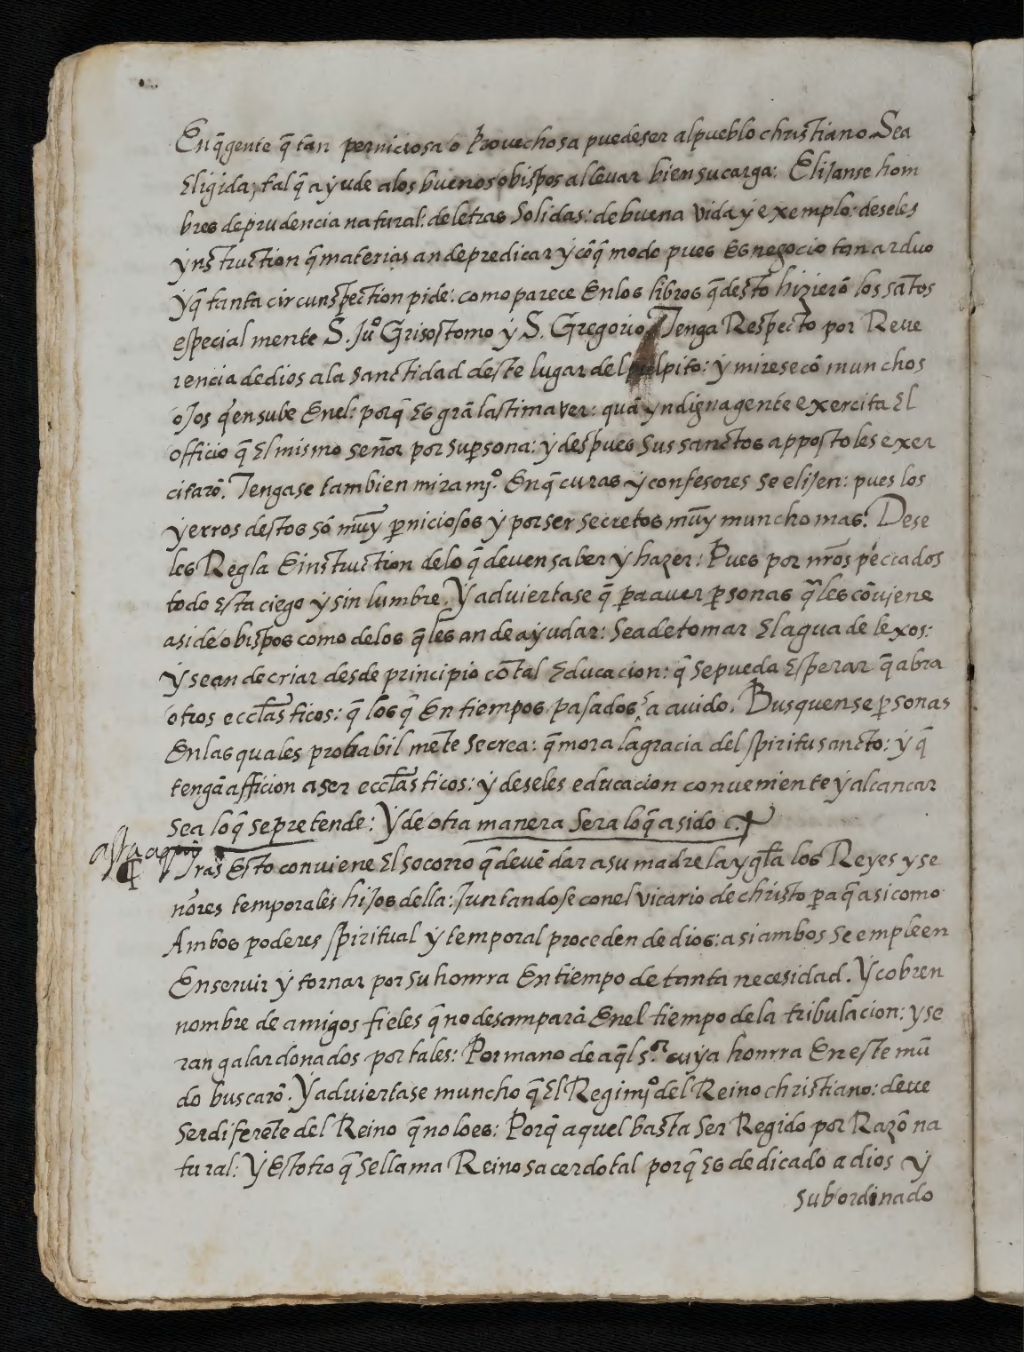 En q̃ gente q̃ tan perniciosa o Provechosa puede ser al pueblo christiano Sea
Eligida, tal q̃ ayude a los buenos obispos a lleuar bien su carga: Elijanse hom
bres de prudencia natural: de letras Solidas: de buena vida y exemplo: deseles
ynstruction q̃ materias an de predicar y cõ q̃ modo pues Es negocio tan arduo
y q̃ tanta circunspection pide: como parece En los libros q̃ desto hizierõ los sãtos
especial mente S. Juº Grisostomo y S. Gregorio Tenga Respecto por Reue
rencia de dios a la sanctidad deste lugar del pulpito: y mirese cõ munchos
ojos q̃en sube En el: porq̃ Es grã lastima ver: quã yndigna gente exercita El
officio q̃ El mismo señor por su p̃sona: y despues sus sanctos appostoles exer
citarõ. Tengase tambien miramjº. En q̃ curas y confesores se elijen: pues los
yerros destos sõ mũy p̃niciosos y por ser secretos mũy muncho mas: Dese
les Regla E instruction de lo q̃ deven saber y hazer: Pues por nr̃os peccados
todo Esta ciego y sin lumbre. Y aduiertase q̃ p̃a auer p̃sonas q̃ les cõujene
asi de obispos como de los q̃ les an de ayudar: Sea de tomar El agua de lexos:
y se an de criar desde principio cõ tal Educacion: q̃ se pueda Esperar q̃ abra
otros eccl̃asticos: q̃ los q̃ En tiempos pasados a auido. Busquense p̃sonas
En las quales probabil mẽte se crea: q̃ mora la gracia del spiritu sancto: y q̃
tengã afficion a ser eccl̃asticos: y deseles educacion conueniente y alcancar
sea lo q̃ se pretende: Y de otra manera Sera lo q̃ a sido
asta aqui
Tras Esto conviene El socorro q̃ devẽ dar a su madre la ygl̃a los Reyes y se
ñores temporales hijos della: Juntandose con el vicario de christo p̃a q̃ asi como
Ambos poderes spiritual y temporal proceden de dios: asi ambos se empleen
En seruir y tornar por su honrra En tiempo de tanta necesidad. Y cobren
nombre de amigos fieles q̃ no desamparã En el tiempo de la tribulacion: y se
ran galardonados por tales: Por mano de aq̃l sºr cuya honrra En este mũ
do buscarõ. Y aduiertase muncho q̃ El Regimjº del Reino christiano: deve
Ser diferẽte del Reino q̃ no lo es: Porq̃ aquel basta Ser Regido por Razõ na
tural: Y Estotro q̃ se llama Reino sacerdotal porq̃ Es dedicado a dios y
subordinado